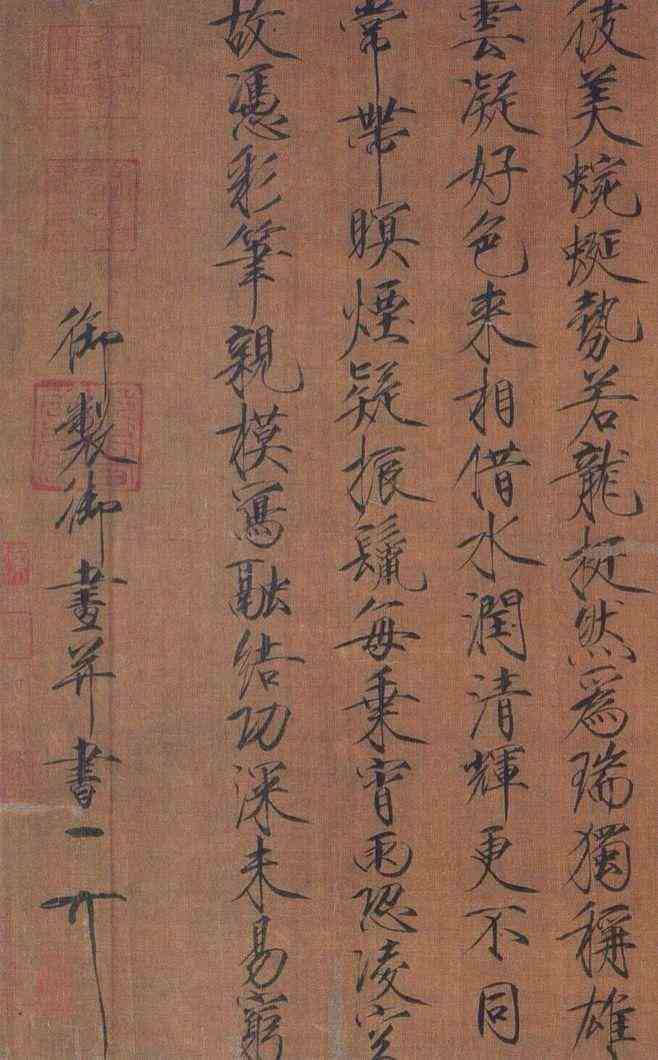 彼美蜿蜒勢若龍挺然爲瑞獨稱雄
雲凝好色來相借水潤清輝更不同
常帶暝煙疑振鬣每乘宵雨恐凌空
故憑彩筆親模寫融結功深未易窮
御製御畫并書天下一人